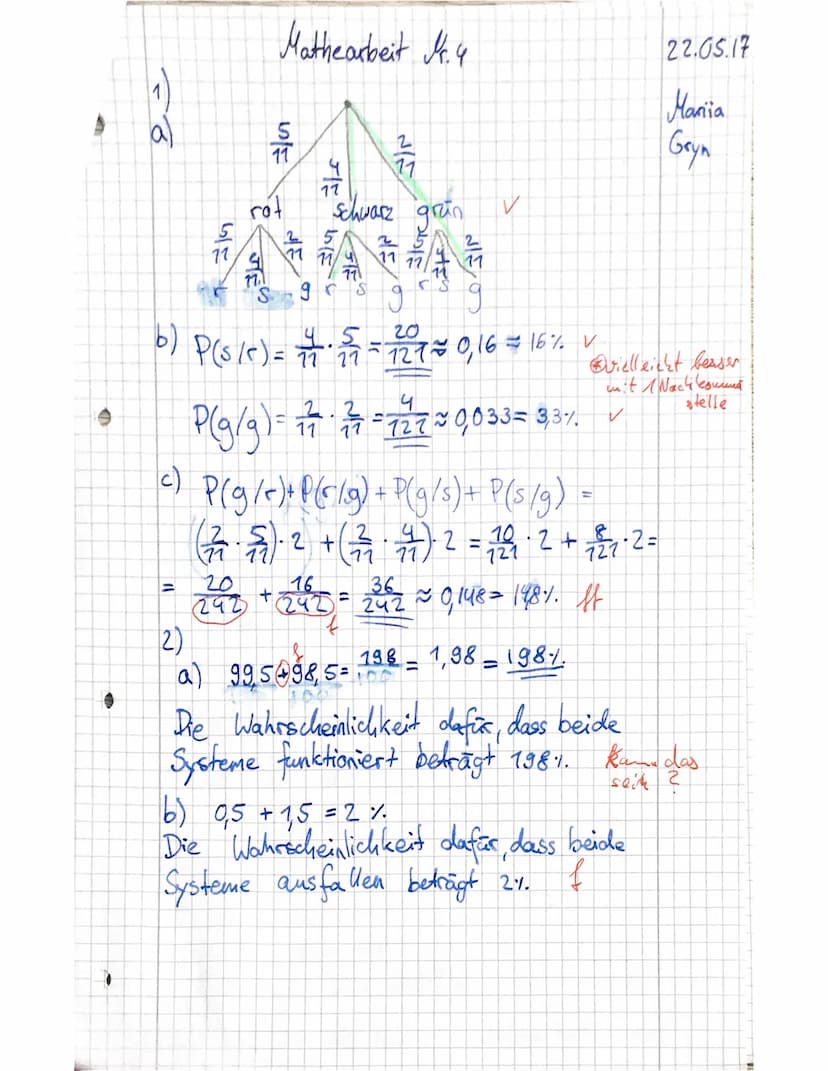 Mathearbeit Nr. 4 22.05.17
1) Mariia
a) Gryn
5/11 4/11 2/11
rot schwarz grün ✓
5/11 4/11 2/11 5/11 4/11 2/11 5/11 4/11 2/11
r s g r s g r s g
b) P(s/r) = 4/11 · 5/11 = 20/121 ≈ 0,16 = 16% ✓
vielleicht besser
mit 1 Nachkomma
stelle
P(g/g) = 2/11 · 2/11 = 4/121 ≈ 0,033 = 3,3% ✓
c) P(g/r) + P(r/g) + P(g/s) + P(s/g) =
(2/11 · 5/11) · 2 + (2/11 · 4/11) · 2 = 10/121 · 2 + 8/121 · 2 =
= 20/242 + 16/242 = 36/242 ≈ 0,148 = 148% ff
f
2) f
a) 99,5 + 98,5 = 198/100 = 1,98 = 198%
Die Wahrscheinlichkeit dafür, dass beide
Systeme funktioniert beträgt 198%. Kann das
sein?
b) 0,5 + 1,5 = 2%
Die Wahrscheinlichkeit dafür, dass beide
Systeme ausfallen beträgt 2%. f